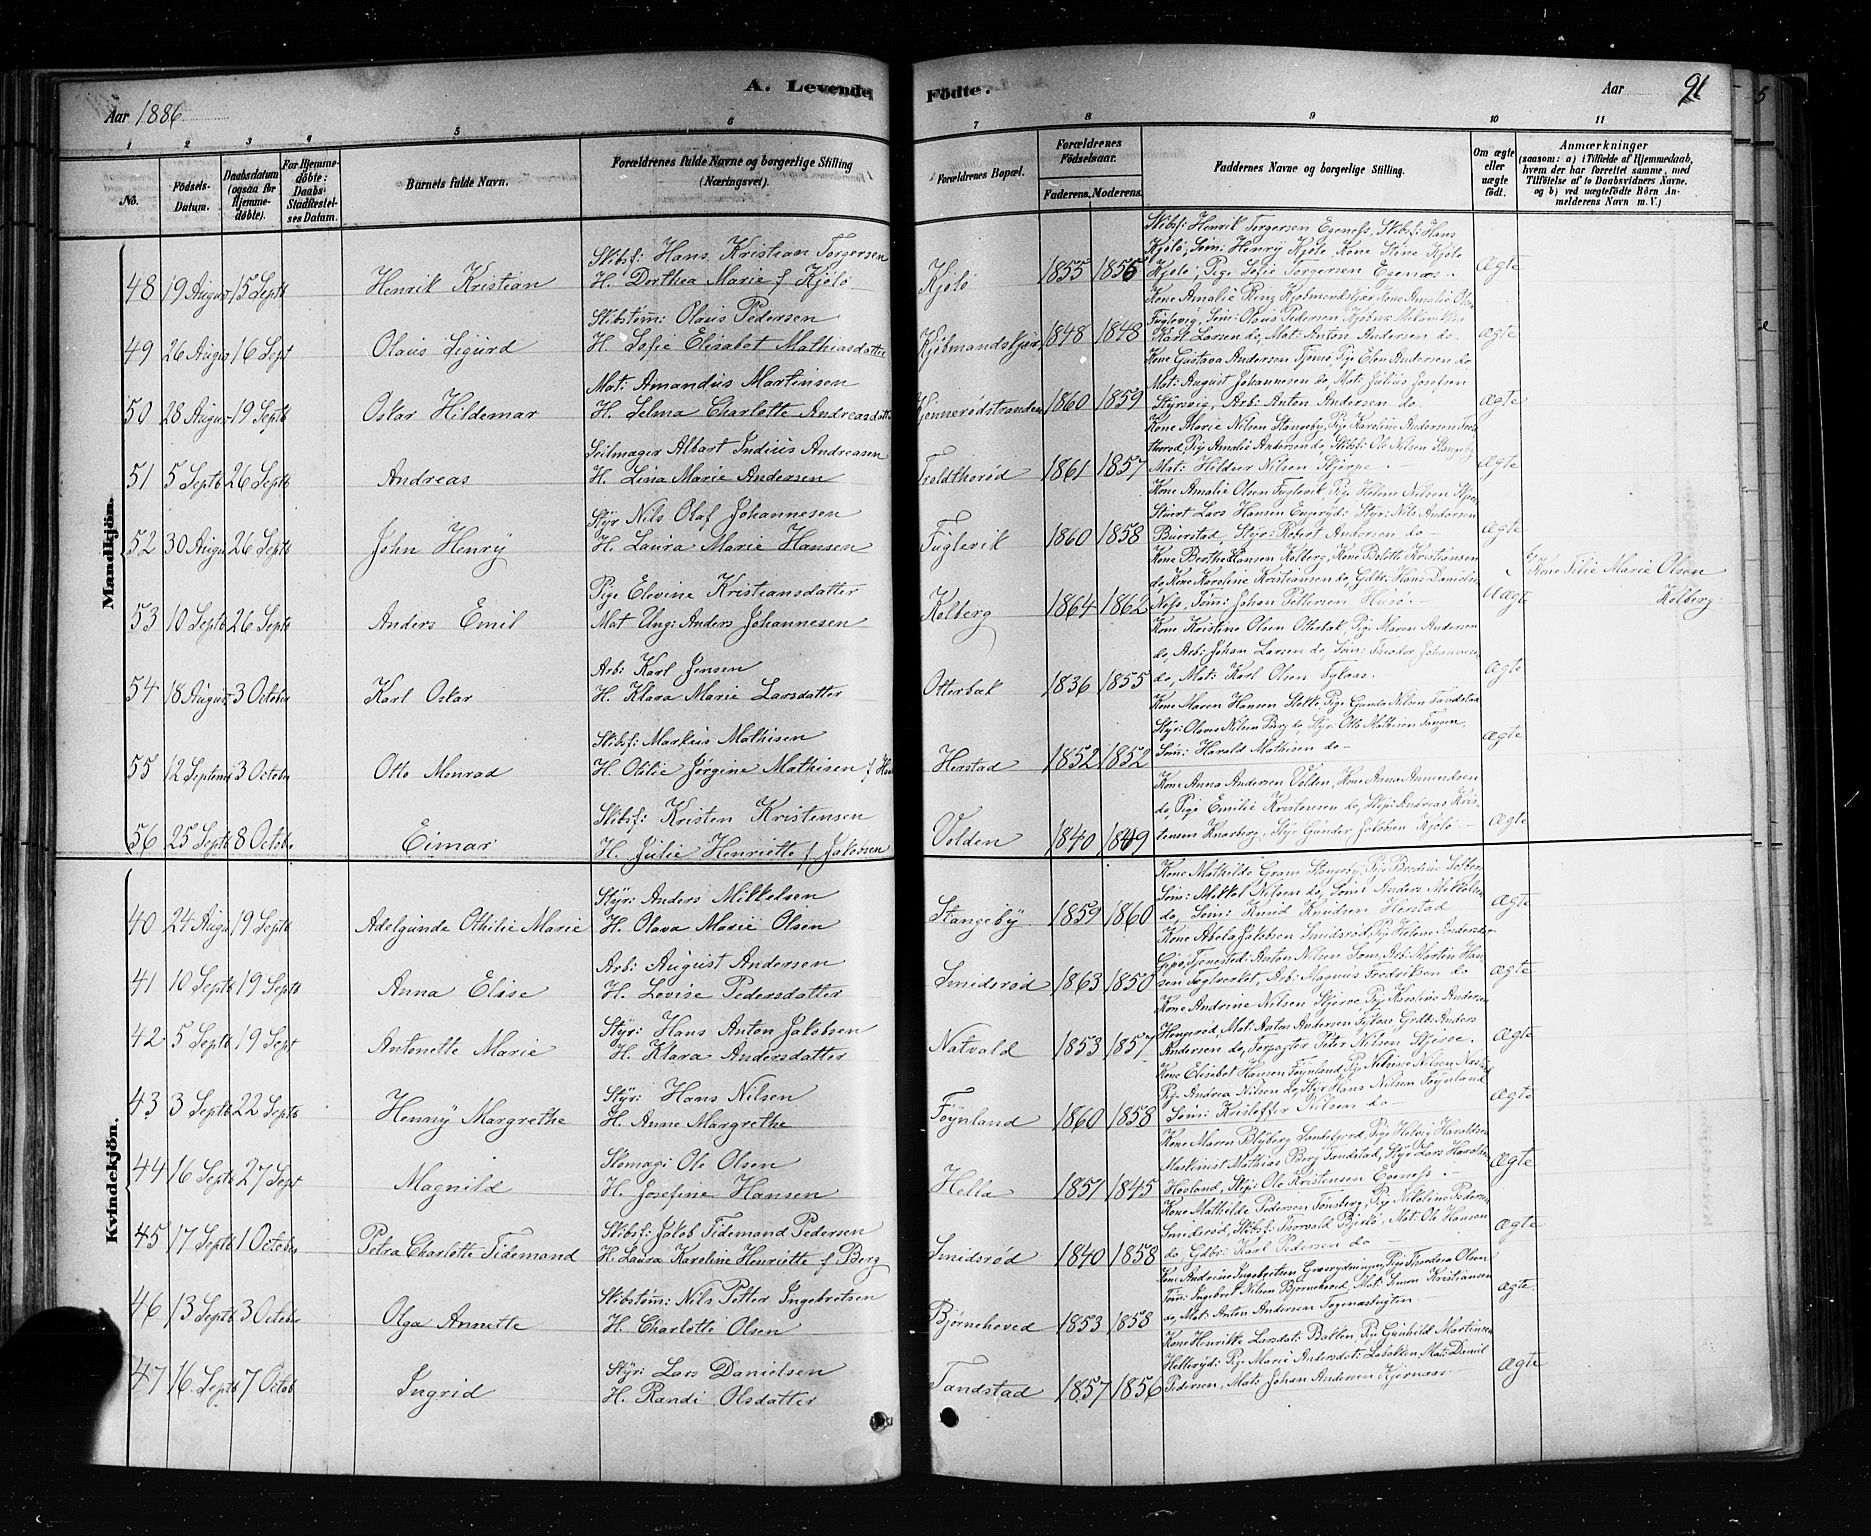 A. Levende Födte.
Aar 1886
Aar
91
1 2 3 4 5 6 7 8 9 10 11
No.
Födsels-Datum.
Daabsdatum (ogsaa for Hjemme-döbte).
For Hjemme-döbte: Daabs-Stadfæstelses Datum.
Barnets fulde Navn.
Forældrenes fulde Navne og borgerlige Stilling (Næringsvei).
Forældrenes Bopæl.
Forældrenes Födselsaar.
Faderens. Moderens.
Faddernes Navne og borgerlige Stilling.
Om ægte eller uægte födt.
Anmærkninger
(saasom: a) i Tilfælde af Hjemmedaab, hvem der har forrettet samme, med Tilföielse af to Daabsvidners Navne, og b) ved uægtefödte Börn Anmelderens Navn m. V.)
Mandkjön.
48 19 August 15 Septb Henrik Kristian
Skibsf: Hans Kristian Torgersen
H. Dorthea Marie f Kjölö
Kjölö 1855 1856
Skibsf: Henrik Torgersen Egeness, Skibsf: Hans
Kjölö, Töm: Henry Kjölö Kone Stine Kjölö
Kjölö, Pige Sofie Torgersen Egenæs.
Ægte
49 26 Augus 16 Sept Olaus Sigurd
Skibstöm: Olaus Pedersen
H. Sofie Elisabet Mathiasdatter
Kjöbmandskjær 1848 1848
Ægte
50 28 Augus 19 Septb Oskar Hildemar
Mat: Amandus Martinsen
H. Selma Charlotte Andreasdatt
Kjönnerødstranden 1860 1859
Kone Gustava Andersen Tjømø Pige Elen Andersen do
Mat: August Johannesen do, Mat: Julius Josefsen
Arb: Anton Andersen do
Ægte
51 5 Septb 26 Septb Andreas
Seilmager Albart Indius Andreasen
H. Lina Marie Andersen
Troldthorød 1861 1857
Kone Marie Nilsen Stangeby, Pige Karoline Andersen
Pige Amalie Andersen do, Skibsf: Ole Nilsen Stangeby
Mat: Hildeur Nilsen Skjerpe.
Ægte
52 30 Augu 26 Septb John Henry
Styr Nils Olaf Johannesen
H. Laura Marie Hansen
Fuglevik 1860 1858
Kone Amalie Olsen Fuglevik, Pige Helene Nilsen
Lars Hansen Engerÿd, Styr: Nils Andersen
Buerstad, Styr: Robert Andersen do
Ægte
53 10 Septb 26 Septb Anders Emil
Pige Elevine Kristiansdatter
Mat Ung: Anders Johannesen
Kolberg 1864 1862
Kone Berthe Hansen Kolberg, Kone Belette Kristiansen
do, Kone Karoline Kristiansen do, Gdbr: Hans Danielsen
Ness, Töm: Johan Pettersen Husö.
Uægte
Kone Tilie Marie Olsen
Kolberg
54 18 August 3 October Karl Oskar
Arb: Karl Jensen
H. Klara Marie Larsdatter
Otterbæk 1836 1855
Kone Kristine Olsen Otterbæk Pige Maren Andersen
do, Arb: Johan Larsen do, Töm: Theodor Johannesen
do, Mat: Karl Olsen
Ægte
55 12 Septemb 3 Octobr Otto Monrad
Skibsf: Markus Mathisen
H. Otilie Jørgine Mathisen f
Herstad 1852 1852
Kone Maren Hansen Stokke Pige Gunda Nilsen Tandstad
Styr: Olaves Nilsen Berg do, Styr: Otto Mathisen
Töm: Harald Mathisen do
Ægte
56 25 Septb 8 October Eimar
Skibsf: Kristen Kristensen
H. Julie Henriette f Jakobsen
Volden 1840 1849
Kone Anna Andersen Volden, Kone Anna Amundsen
do, Pige Emilie Kristensen do, Skp: Andreas Kris
tensen Knarberg, Styr Gunder Jakobsen Kjölö
Ægte
Kvindekjön.
40 24 Aug 19 Septb Adelgunde Othilie Marie
Styr: Anders Mikkelsen
H. Olava Marie Olsen
Stangeby 1859 1860
Kone Mathilde Gram Stangeby, Pige
Töm: Mikkel Nilsen do, Töm: Anders Mikkelsen
do, Töm: Knud Knudsen Herstad
Ægte
41 10 Septb 19 Septb Anna Elise
Arb: August Andersen
H. Lovise Pedersdatter
Smidsrød 1863 1850
Kone Abela Jakobsen Smidsrød, Pige Helene Andersen
Anton Nilsen Arb: Martin Han
sen Teglverket, Arb: Magnus Fredriksen do
Ægte
42 5 Septb 19 Sept Antonette Marie
Styr: Hans Anton Jakobsen
H. Klara Andersdatter
Natvald 1853 1857
Kone Andrine Nilsen Skjerve Pige Karoline Andersen
Mat: Anton Andersen Gdbr: Anders
Andersen do, Peter Nilsen Skjerve.
Ægte
43 3 Septb 22 Septb Henny Margrethe
Styr: Hans Nilsen
H. Anne Margrethe
Föynland 1860 1858
Kone Elisabet Hansen Föynland, Pige Nilsen
Pige Andrea Nilsen do, Styr Hans Nilsen Föynland
Töm: Kristoffer Nilsen do
Ægte
44 16 Septb 27 Sept Magnild
Skomagr Ole Olsen
H. Josefine Hansen
Hella 1851 1845
Kone Maren Blyberg Sandefjord, Pige Helvig Haraldsen
Maskinist Mathias Berg Tandstad, Styr Lars Haraldsen
Ole Kristensen Egeness.
Ægte
45 17 Septb 1 October Petra Charlotte Tidemand
Skibsf: Jakob Tidemand Pedersen
H. Laura Karoline Henriette f Berg
Smidsrød 1840 1858
Kone Mathilde Pedersen Tønsberg, Pige Nikoline Pedersen
Smidsrød, Skibsf: Thorvald Mat: Ole Hansen
do, Gdbr: Karl Pedersen do
Ægte
46 13 Septb 3 October Olga Annette
Skibstöm: Nils Petter Ingebretsen
H. Charlotte Olsen
Bjørnehoved 1853 1858
Kone Andrine Ingebretsen Pige Theodora Olsen
Töm: Ingebret Nilsen Bjørnehoved, Mat: Simon Kristiansen
do, Mat: Anton Andersen
Ægte
47 16 Septb 7 Octob Ingrid
Styr: Lars Danielsen
H. Randi Olsdatter
Tandstad 1857 1856
Kone Henrikke Larsdat: Bakken, Pige Gunhild Martinsen
Pige Marie Andersdat: Labakken, Mat: Daniel
Pedersen, Mat: Johan Andersen Kjernaas
Ægte